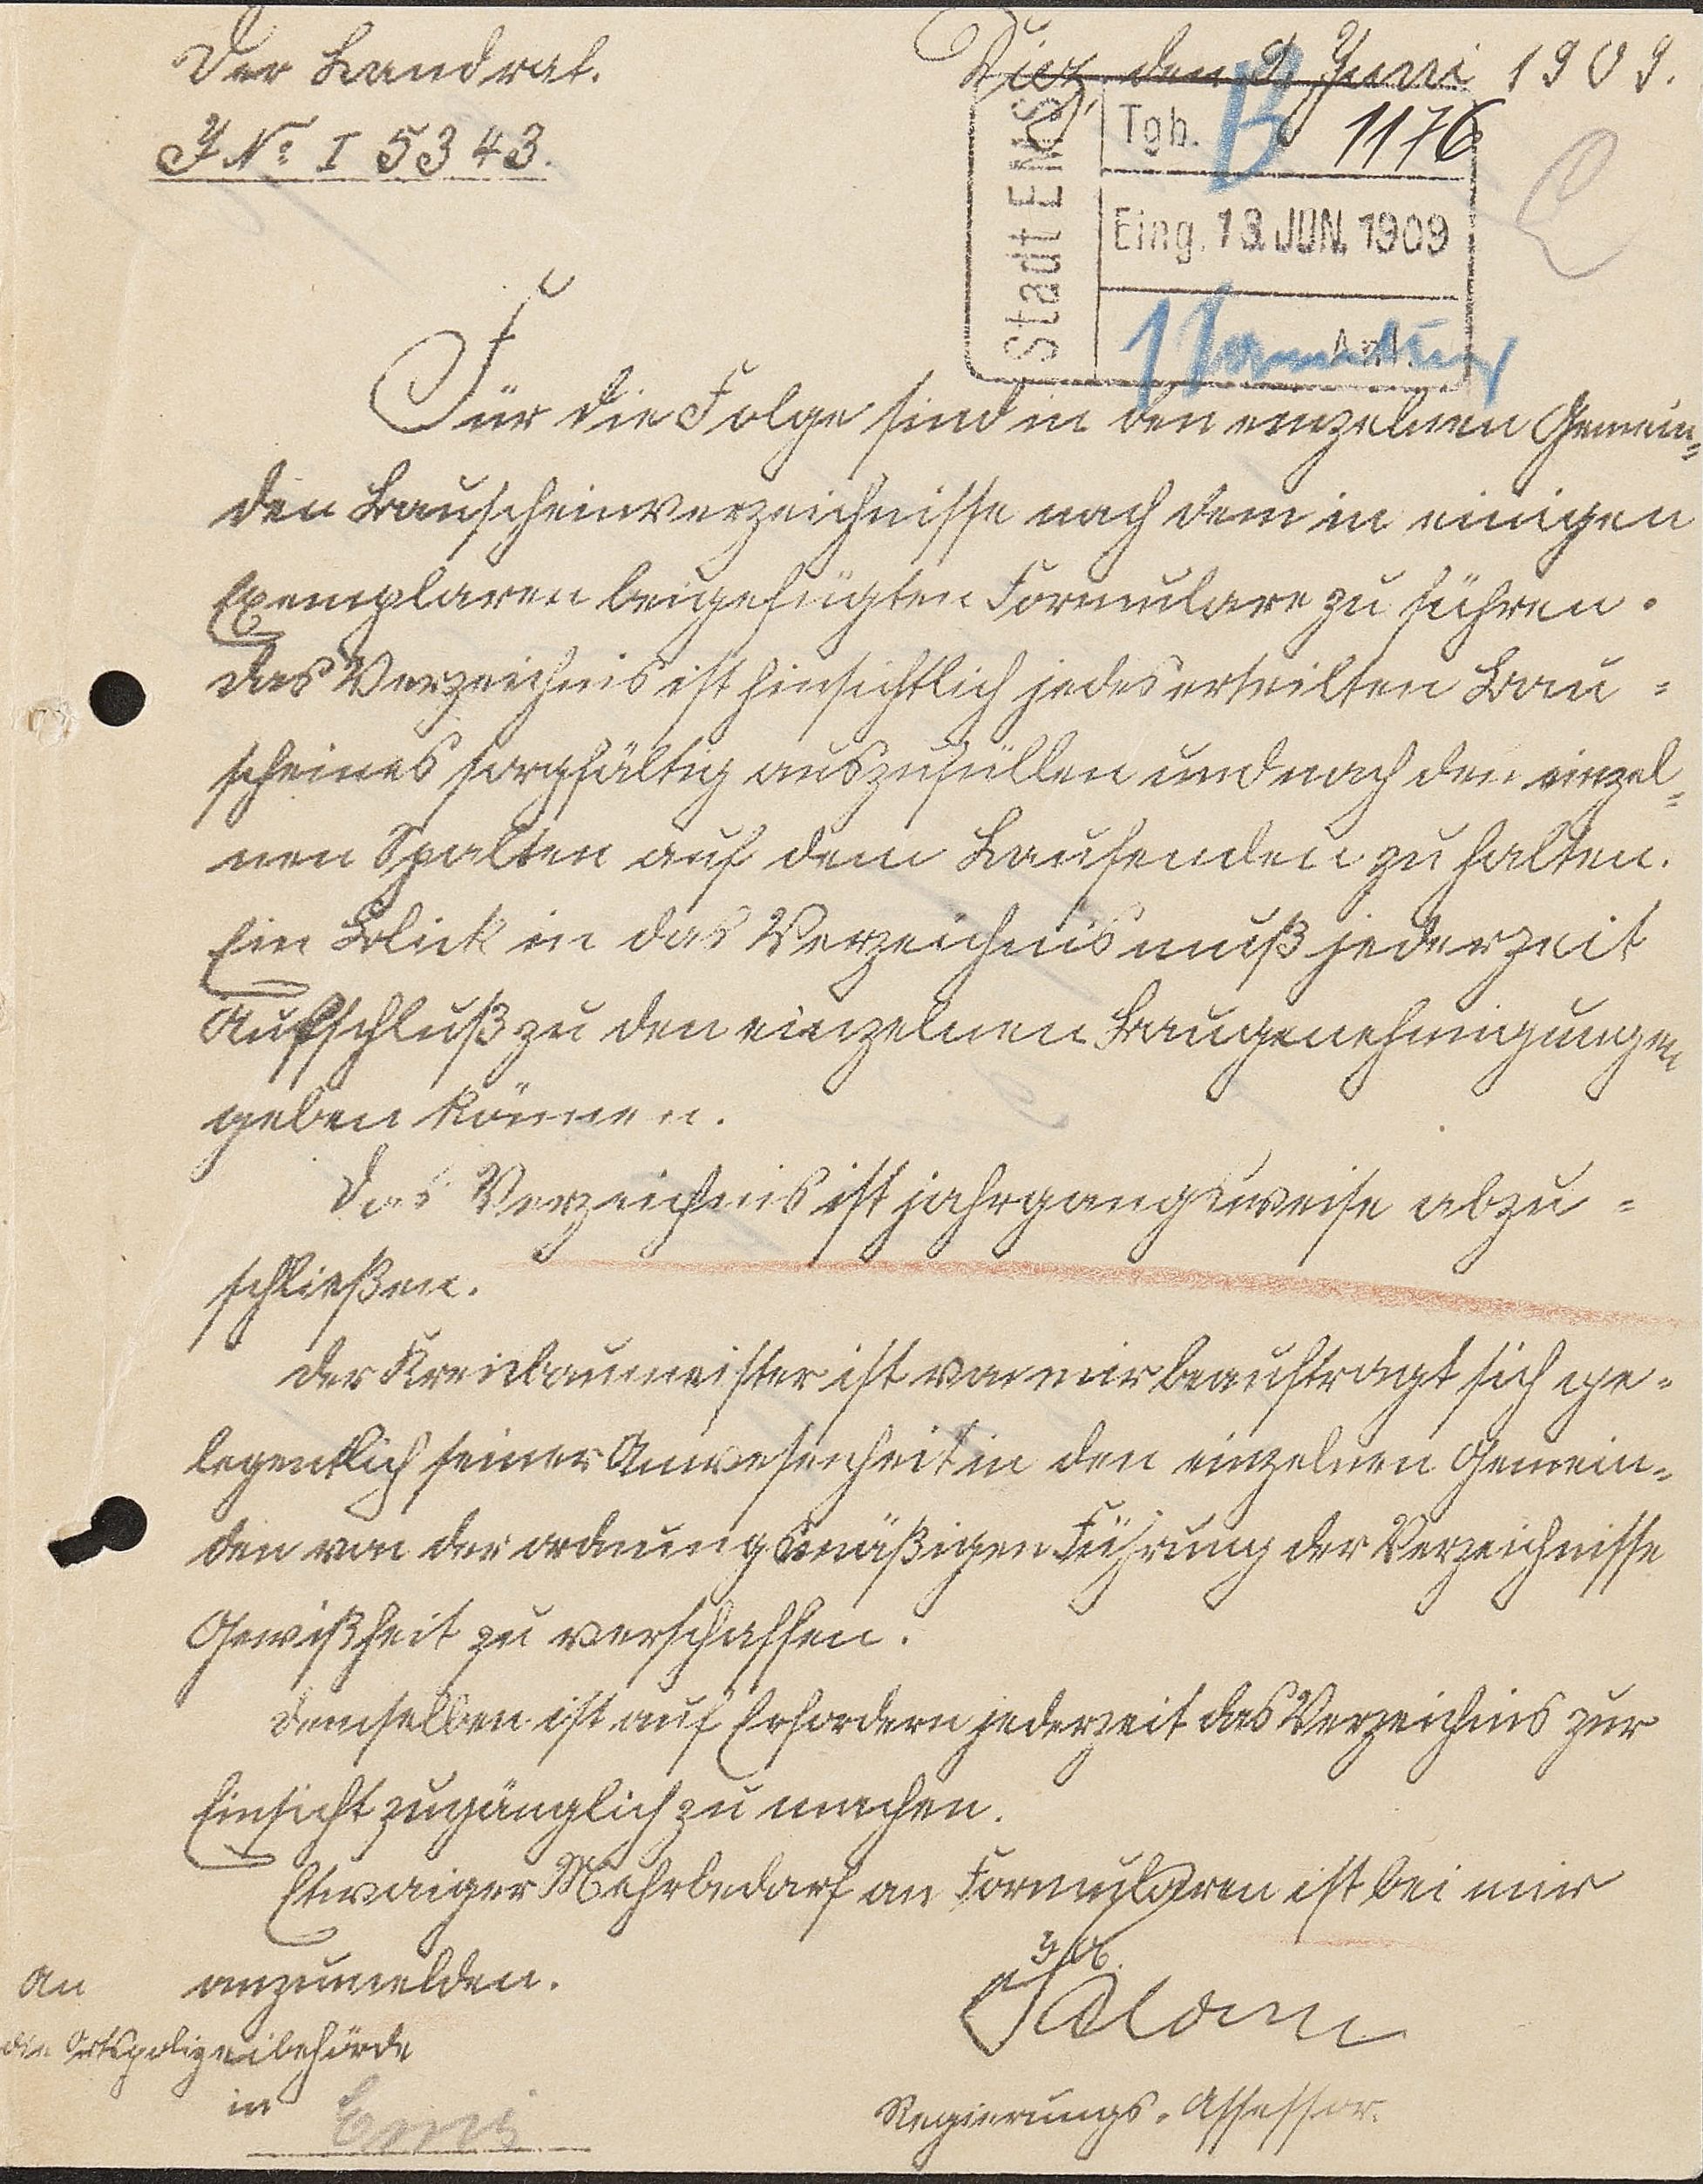 Der Landrat.
Diez, den 9 Juni 1909.
J No I 5343.
Stadt EMS
Tgb. B 1176
Eing. 13. JUN. 1909
Für die Folge sind in den einzelnen Gemein=
den Bauscheinverzeichnisse nach dem in einigen
Exemplaren beigefügten Formulare zu führen.
Das Verzeichnis ist hinsichtlich jedes erteilten Bau=
scheines sorgfältig auszufüllen und nach den einzel=
nen Spalten auf dem Laufenden zu halten.
Ein Blick in das Verzeichnis muß jederzeit
Aufschluß zu den einzelnen Baugenehmigungen
geben können.
Das Verzeichnis ist jahrgangsweise abzu=
schließen.
Der Kreisbaumeister ist von mir beauftragt sich ge=
legentlich seiner Anwesenheit in den einzelnen Gemein=
den von der ordnungsmäßigen Führung der Verzeichnisse
Gewißheit zu verschaffen.
Demselben ist auf Erfordern jederzeit das Verzeichnis zur
Einsicht zugänglich zu machen.
Etwaiger Mehrbedarf an Formularen ist bei mir
anzumelden.
An
die Ortspolizeibehörde
in Ems
Regierungs-Assessor.